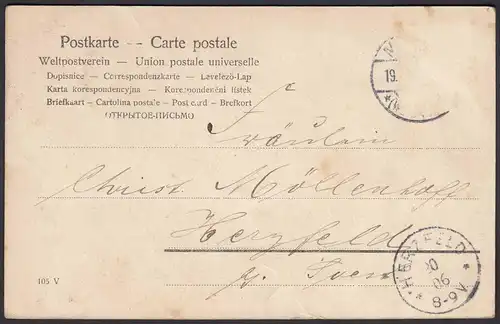 Postkarte -- Carte postale
Weltpostverein — Union postale universelle
Dopisnice — Correspondenzkarte — Levelezö-Lap
Karta korespondencyjna — Korespondenční lístek
Briefkaart — Cartolina postale — Post card — Brefkort
ОТКРЫТОЕ-ПИСЬМО
19.
Fräulein
Christ. Möllenhoff
Herzfeld
Soest
HERZFELD
06
8-9V.
105 V